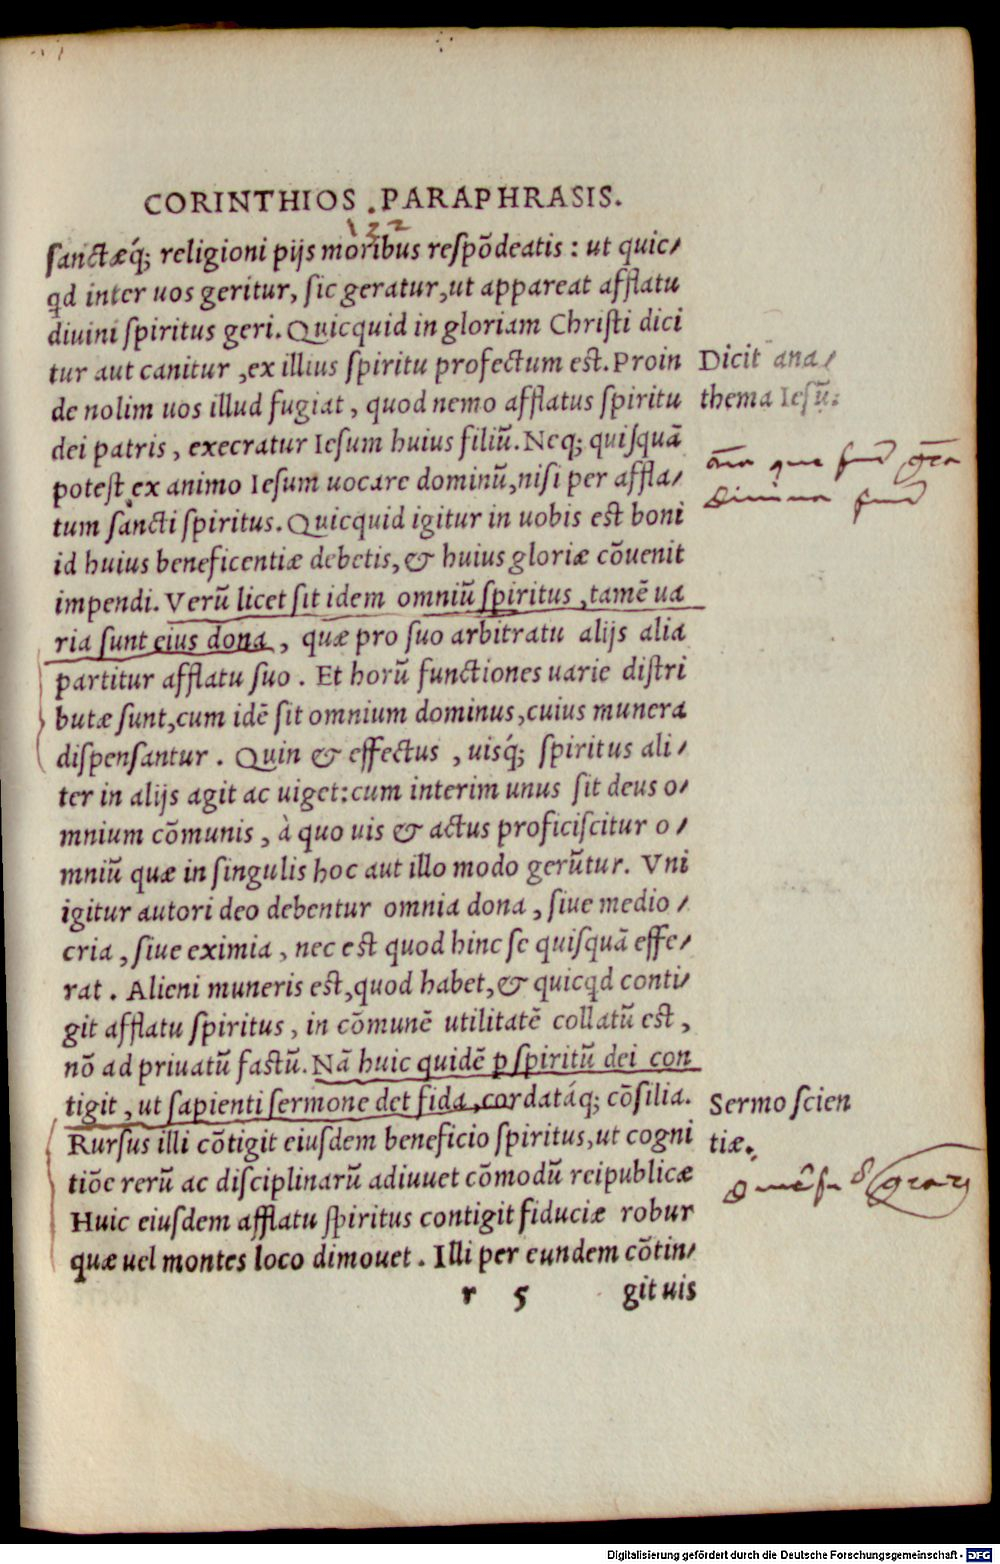 CORINTHIOS PARAPHRASIS.
132
sanctæq́; religioni pijs moribus respõdeatis : ut quic⸗
qd inter uos geritur, sic geratur, ut appareat afflatu
diuini spiritus geri. Quicquid in gloriam Christi dici
tur aut canitur , ex illius spiritu profectum est. Proin
de nolim uos illud fugiat , quod nemo afflatus spiritu
dei patris , execratur Iesum huius filiũ. Neq; quisquã
potest ex animo Iesum uocare dominũ, nisi per affla⸗
tum sancti spiritus. Quicquid igitur in uobis est boni
id huius beneficentiæ debetis, & huius gloriæ cõuenit
impendi. Verũ licet sit idem omniũ spiritus , tamẽ ua
ria sunt eius dona , quæ pro suo arbitratu alijs alia
partitur afflatu suo . Et horũ functiones uarie distri
butæ sunt, cum idẽ sit omnium dominus, cuius munera
dispensantur . Quin & effectus , uisq́; spiritus ali⸗
ter in alijs agit ac uiget: cum interim unus sit deus o⸗
mnium cõmunis , à quo uis & actus proficiscitur o⸗
mniũ quæ in singulis hoc aut illo modo gerũtur. Vni
igitur autori deo debentur omnia dona , siue medio⸗
cria , siue eximia , nec est quod hinc se quisquã effe⸗
rat . Alieni muneris est, quod habet, & quicqd conti⸗
git afflatu spiritus , in cõmunẽ utilitatẽ collatũ est ,
nõ ad priuatũ fastũ. Nã huic quidẽ ꝑ spiritũ dei con
tigit , ut sapienti sermone det fida , cordatáq; cõsilia.
Rursus illi cõtigit eiusdem beneficio spiritus, ut cogni
tiõe rerũ ac disciplinarũ adiuuet cõmodũ reipublicæ
Huic eiusdem afflatu spiritus contigit fiduciæ robur
quæ uel montes loco dimouet . Illi per eundem cõtin⸗
r 5 git uis
Dicit ana⸗
thema Iesũ.
Sermo scien
tiæ.
Digitalisierung gefördert durch die Deutsche Forschungsgemeinschaft - DFG